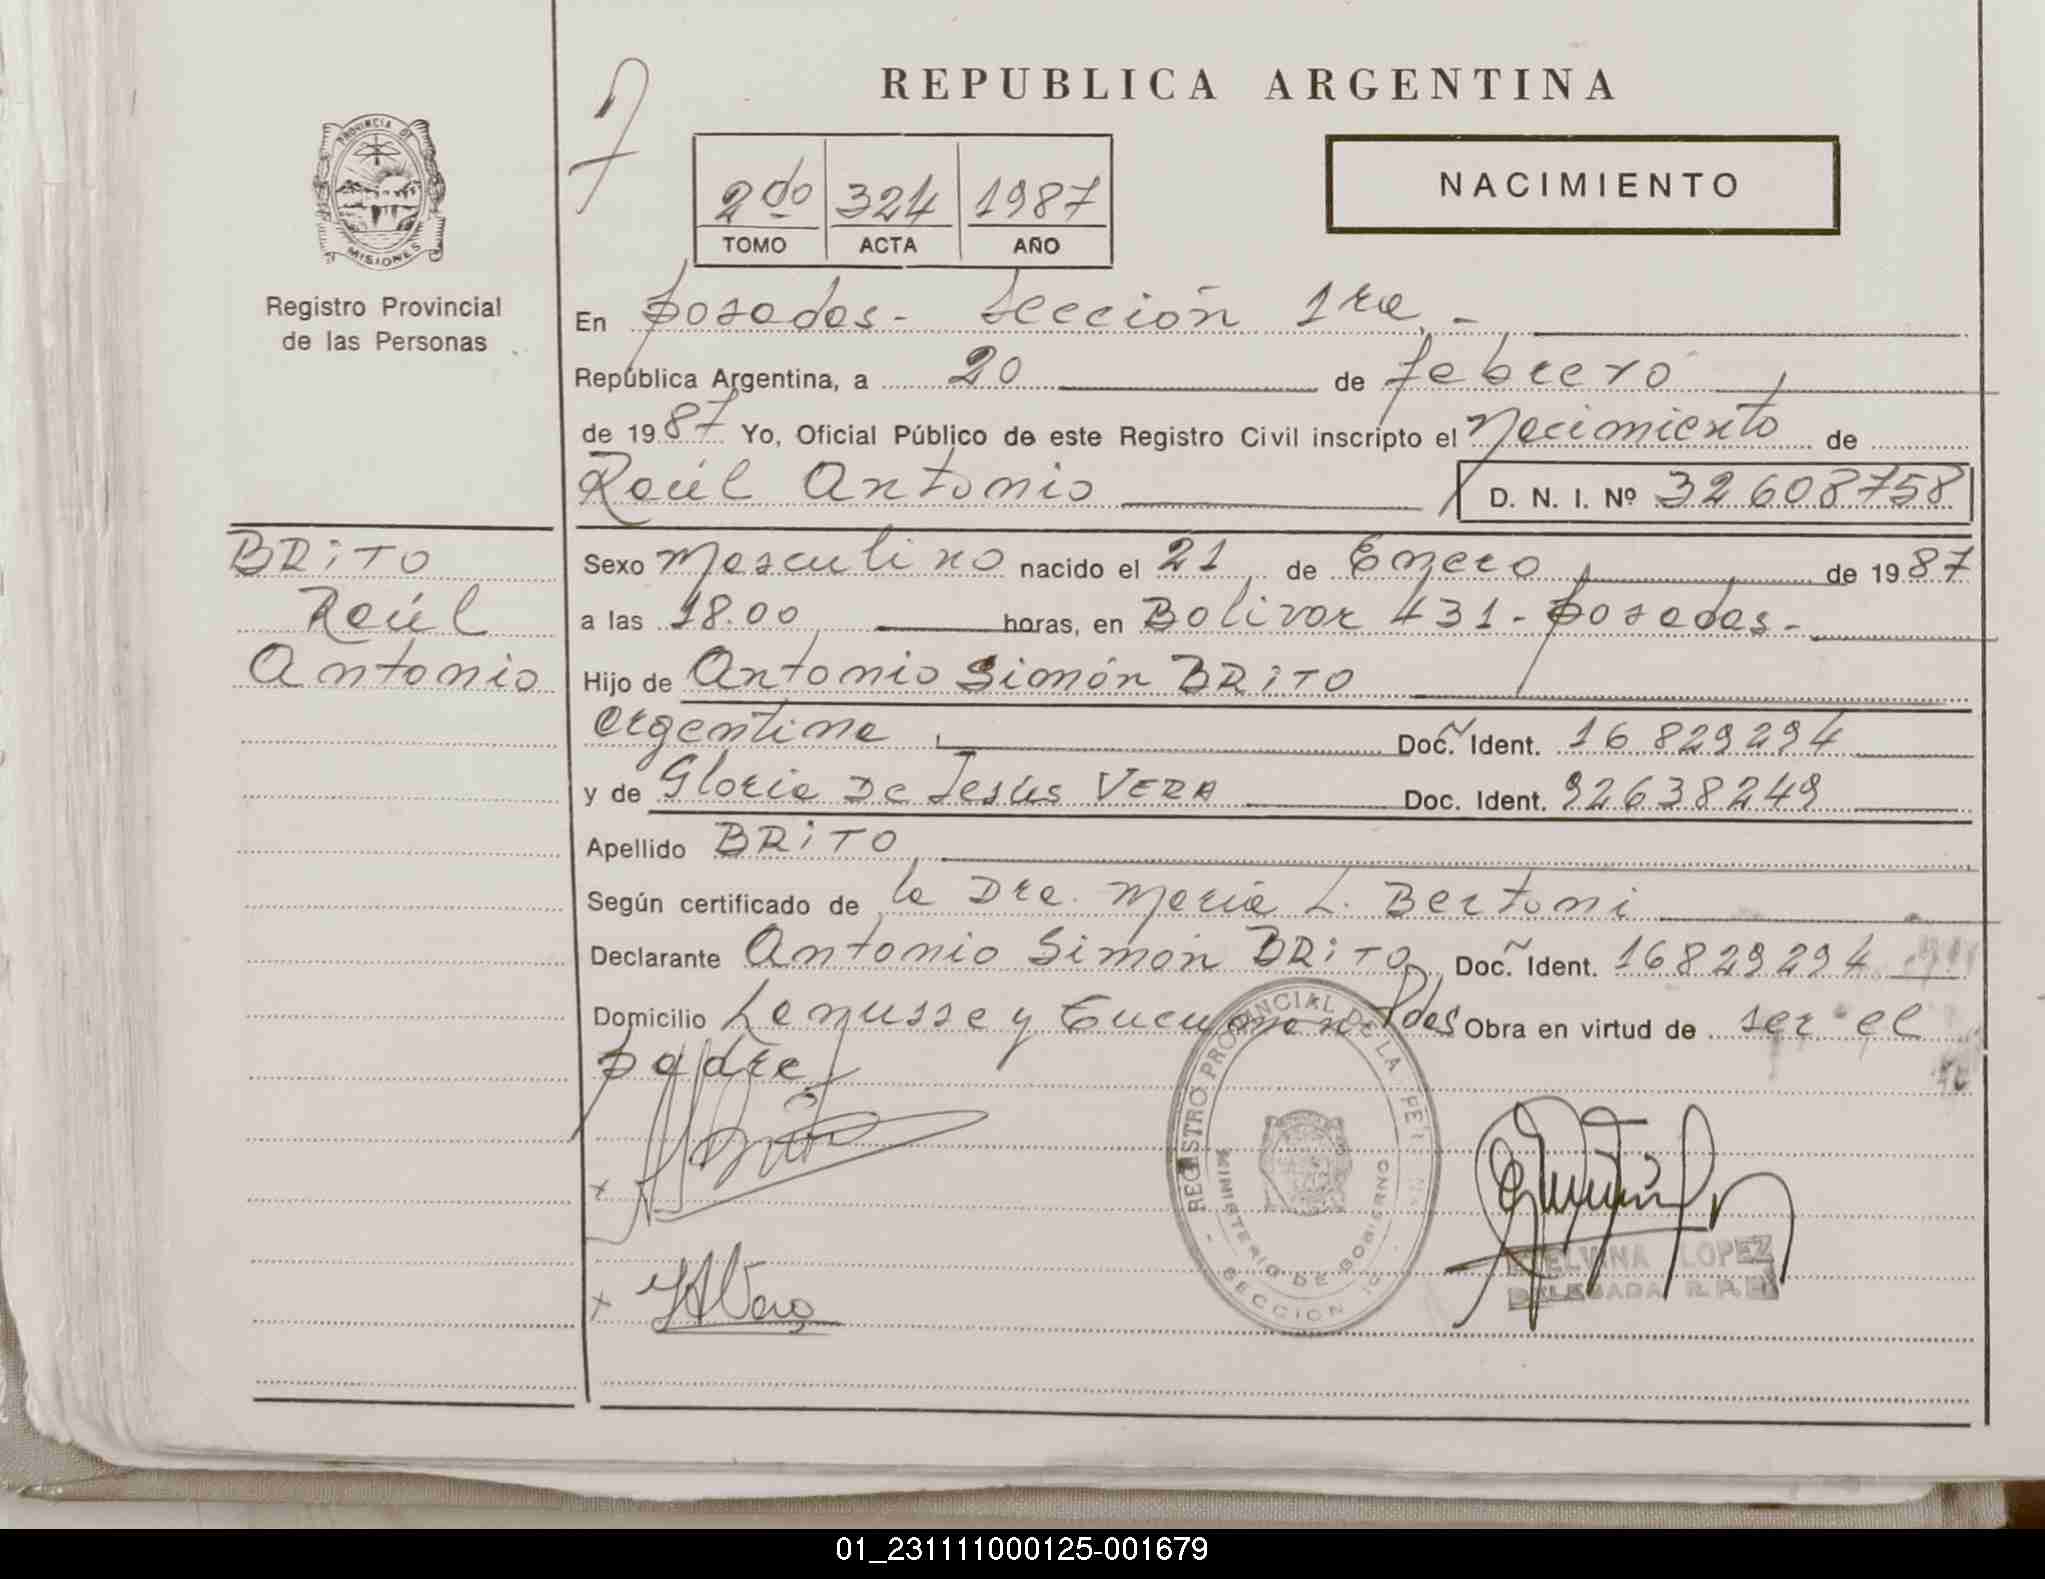 REPUBLICA ARGENTINA
PROVINCIA DE
MISIONES
Registro Provincial
de las Personas
2do 324 1987
TOMO ACTA AÑO
NACIMIENTO
En Posadas - Sección 1ra. -
República Argentina, a 20 de febrero
de 1987 Yo, Oficial Público de este Registro Civil inscripto el Nacimiento de
Raúl Antonio D. N. I. Nº 32608758
BRiTO
Raúl
Antonio
Sexo Masculino nacido el 21 de Enero de 1987
a las 18.00 horas, en Bolivar 431 - Posadas -
Hijo de Antonio Simón BRiTO
argentina Doc. Ident. 16829294
y de Gloria De Jesús VERA Doc. Ident. 92638249
Apellido BRiTO
Según certificado de la Dra. Maria L. Bertoni
Declarante Antonio Simón BRiTO Doc. Ident. 16829294
Domicilio Lanusse y Tucumán Pdas Obra en virtud de ser el
padre
REGISTRO PROVINCIAL DE LA
MINISTERIO DE GOBIERNO
SECCION
ELVINA LOPEZ
DELEGADA R. P.
01_231111000125-001679